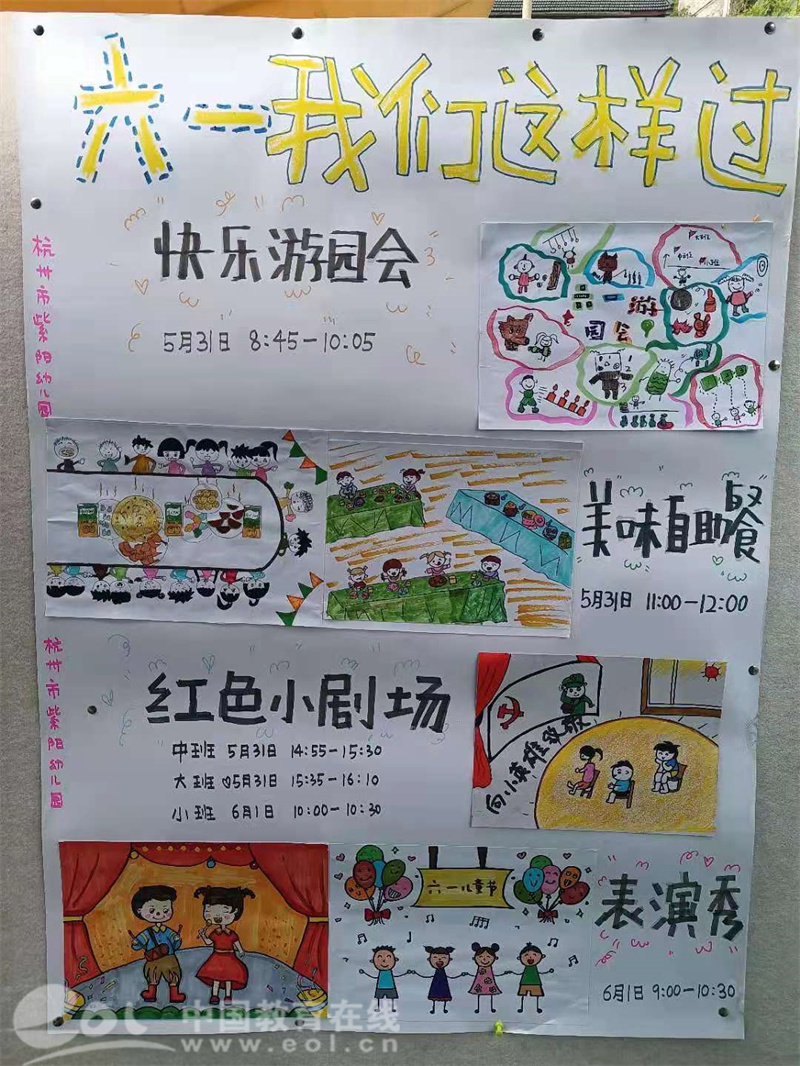 六一我们这样过
快乐游园会
5月31日 8:45-10:05
杭州市紫阳幼儿园
游
园会
美味自助餐
5月31日 11:00-12:00
杭州市紫阳幼儿园
红色小剧场
中班 5月31日 14:55-15:30
大班 5月31日 15:35-16:10
小班 6月1 10:00-10:30
向小英雄致敬
六一儿童节
表演秀
6月1 9:00-10:30
eol 中国教育在线
www.eol.cn